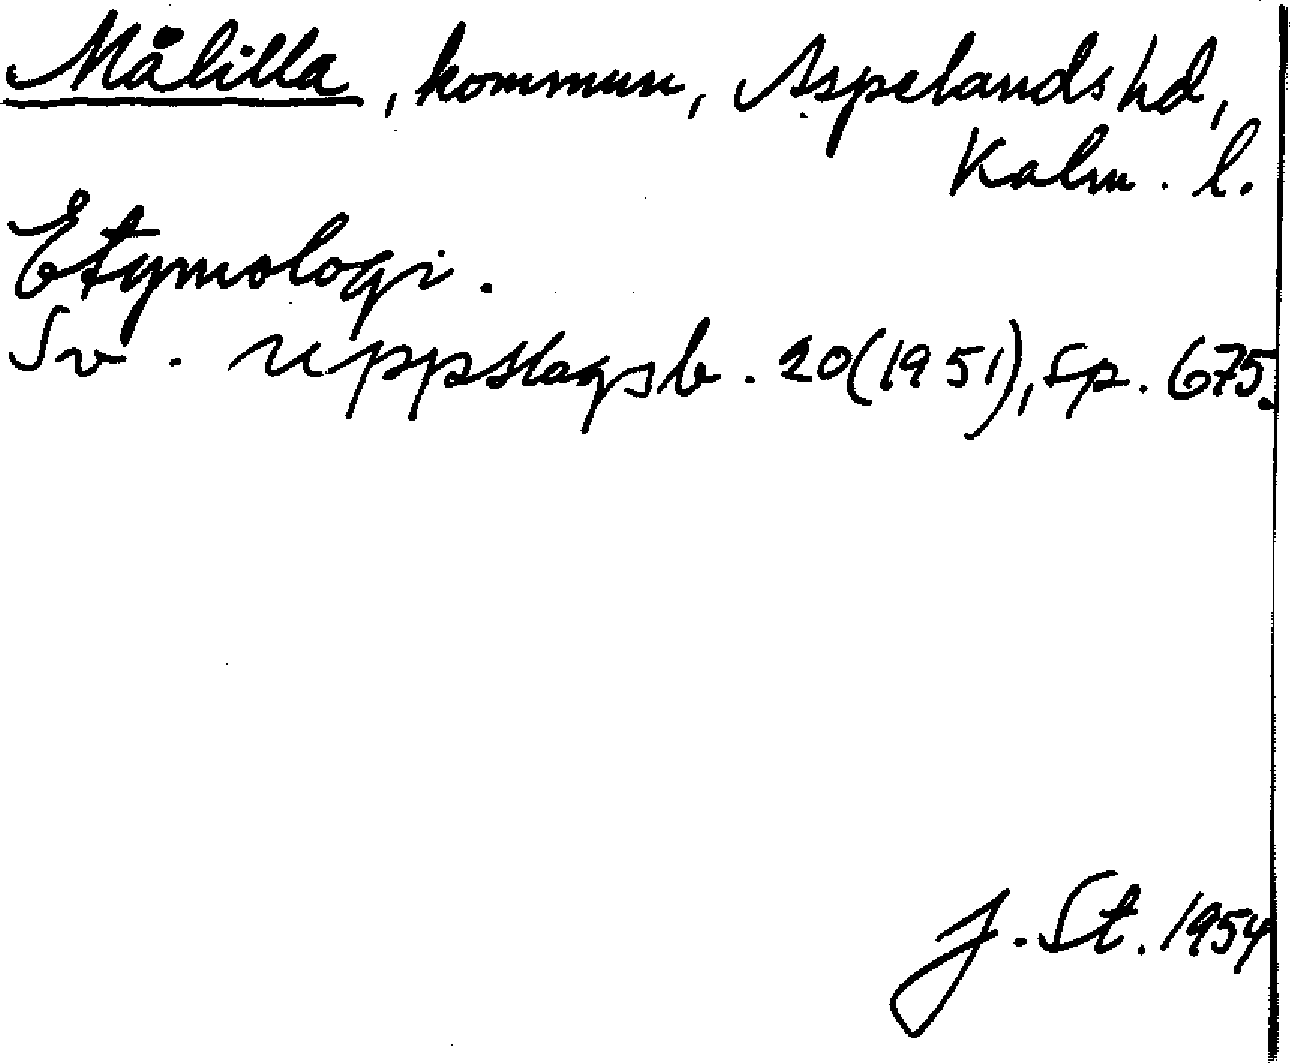 Målilla, kommun, Aspelands hd,
Kalm. l.
Etymologi.
Sv. uppslagsb. 20(1951), sp. 675.
J. St. 1954